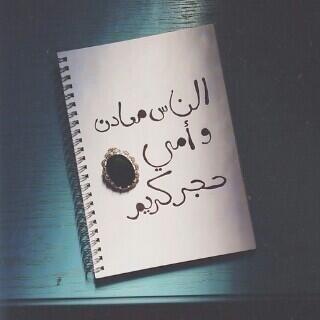 الناس معادن
وأمي
حجر كريم